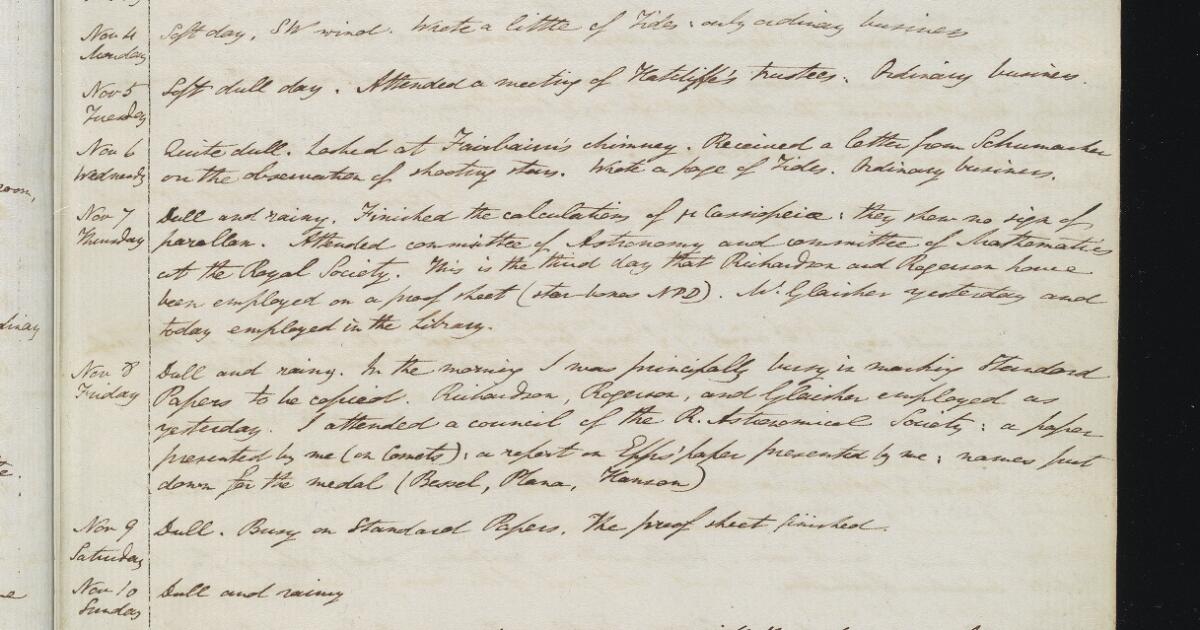 Nov 4 Soft day. SW wind. Wrote a little of Tides: only ordinary business
Monday
Nov 5 Soft dull day. Attended a meeting of Hatcliffe's trustees. Ordinary business.
Tuesday
Nov 6 Quite dull. Looked at Fairbairn's chimney. Received a letter from Schumacher
Wednesday on the observation of shooting stars. Wrote a page of Tides. Ordinary business.
Nov 7 Dull and rainy. Finished the calculations of μ Cassiopeiæ: they shew no sign of
Thursday parallax. Attended committee of Astronomy and committee of Mathematics
at the Royal Society. This is the third day that Richardson and Rogerson have
been employed on a proof sheet (star NPD). Mr Glaisher yesterday and
today employed in the Library.
Nov 8 Dull and rainy. In the morning I was principally busy in marking Standard
Friday Papers to be copied. Richardson, Rogerson, and Glaisher employed as
yesterday. I attended a council of the R. Astronomical Society: a paper
presented by me (on Comets): a report on Epps' paper presented by me: names put
down for the medal (Bessel, Plana, Hansen)
Nov 9 Dull. Busy on Standard Papers. The proof sheet finished.
Saturday
Nov 10 Dull and rainy
Sunday